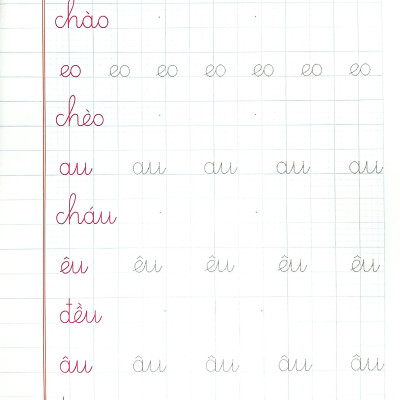 chào
eo eo eo eo eo eo eo
chèo
au au au au au
cháu
êu êu êu êu êu
đều
âu âu âu âu âu